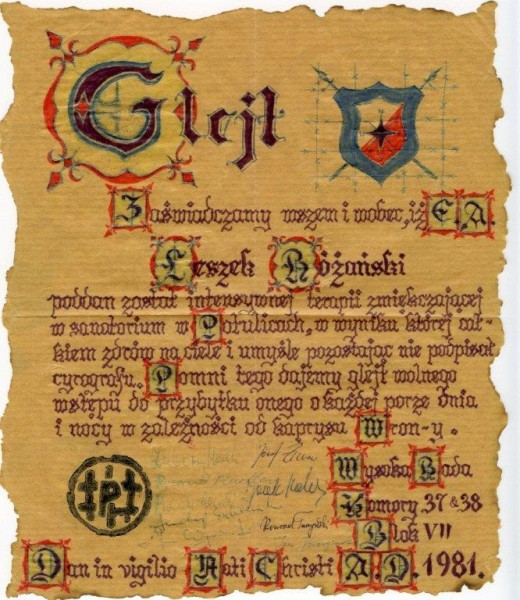 Glejt
Zaświadczamy wszem i wobec, iż E. A.
Leszek Różański
poddan został intensywnej terapii zmiękczającej
w sanatorium w Potulicach, w wyniku której cał-
kiem zdrów na ciele i umyśle pozostając nie podpisał
cyrografu. Pomni tego dajemy glejt wolnego
wstępu do przybytku onego o każdej porze dnia
i nocy w zależności od kaprysu Wron-y.
Wysoka Rada
Komory 37 & 38
Blok VII
P
Dan in vigilio Nati Christi A. D. 1981.